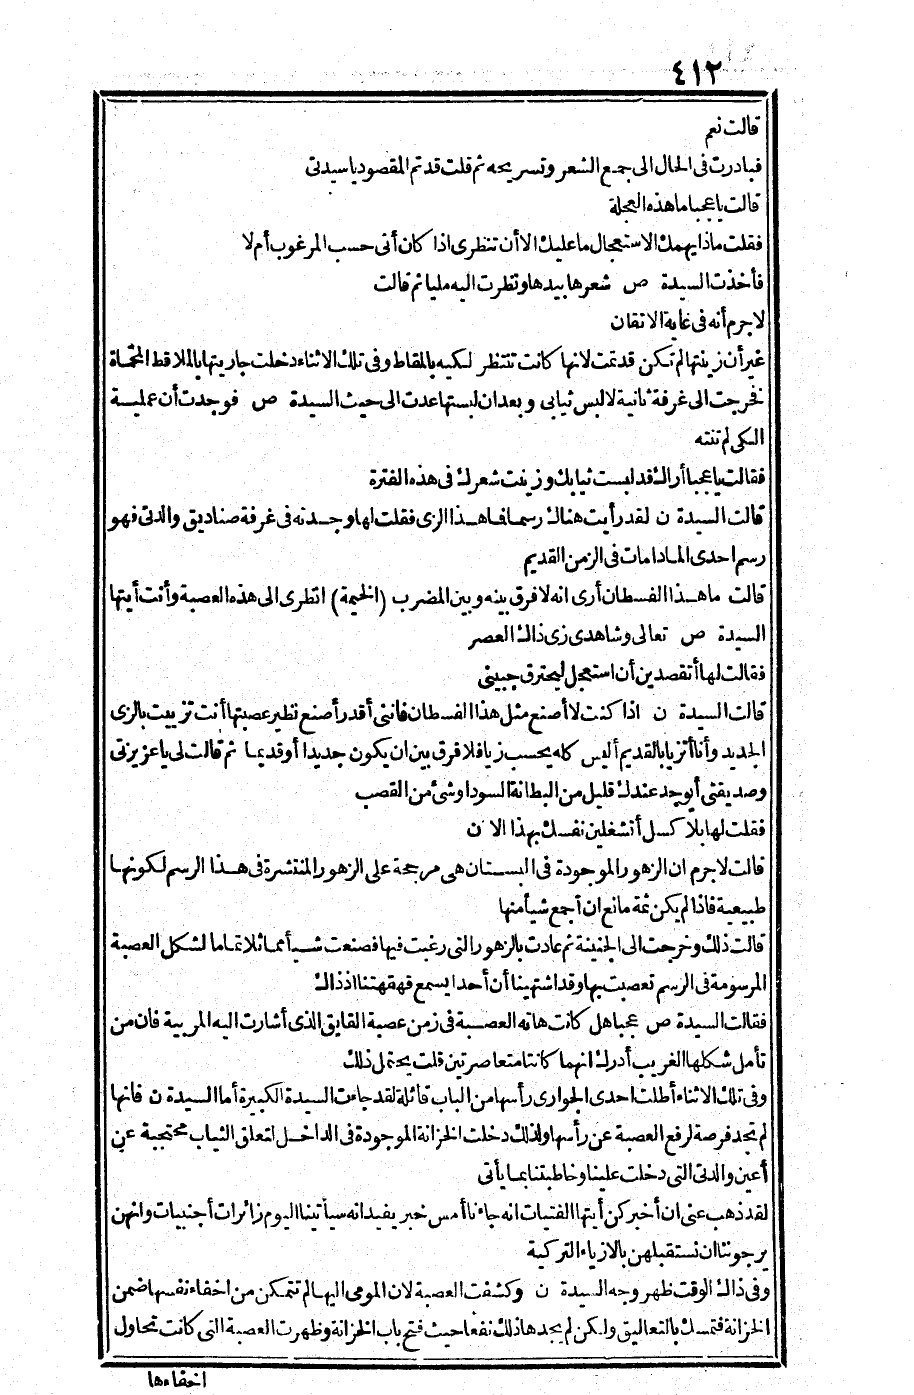 ٤١٢
قالت نعم
فبادرت فى الحال الى جمع الشعر وتسريحه ثم قلت قد تم المقصود يا سيدتى
قالت يا عجبا ما هذه العجلة
فقلت ماذا يهمك الاستعجال ما عليك الا أن تنظرى اذا كان أتى حسب المرغوب أم لا
فأخذت السيدة ص شعرها بيدها ونظرت اليه مليا ثم قالت
لا جرم أنه فى غاية الاتقان
غير أن زينتها لم تكن قد تمت لانها كانت تنتظر لكيه بالمقاط وفى تلك الاثناء دخلت جاريتها بالملاقط المحماة
فخرجت الى غرفة ثانية لالبس ثيابى وبعد ان لبستها عدت الى حيث السيدة ص فوجدت أن عملية
الكى لم تنته
فقالت يا عجبا أراك قد لبست ثيابك وزينت شعرك فى هذه الفترة
قالت السيدة ن لقد رأيت هناك رسما فما هذا الزى فقلت لها وجدته فى غرفة صناديق والدتى فهو
رسم احدى المادامات فى الزمن القديم
قالت ما هذا الفسطان أرى انه لا فرق بينه وبين المضرب (الخيمة) انظرى الى هذه العصبة وأنت أيتها
السيدة ص تعالى وشاهدى زى ذاك العصر
فقالت لها أتقصدين أن استعجل ليحترق جبينى
قالت السيدة ن اذا كنت لا أصنع مثل هذا الفسطان فاننى أقدر أصنع نظير عصبتها أنت تزييت بالزى
الجديد وأنا أتزيا بالقديم أليس كله يحسب زيا فلا فرق بين ان يكون جديدا أو قديما ثم قالت لى يا عزيزتى
وصديقتى أيوجد عندك قليل من البطانة السودا وشئ من القصب
فقلت لها بلا كسل أتشغلين نفسك بهذا الآن
قالت لا جرم ان الزهور الموجودة فى البستان هى مرجحة على الزهور المنتشرة فى هذا الرسم لكونها
طبيعية فاذا لم يكن ثمة مانع ان أجمع شيأ منها
قالت ذلك وخرجت الى الجنينة ثم عادت بالزهور التى رغبت فيها فصنعت شيأ مماثلا تماما لشكل العصبة
المرسومة فى الرسم تعصبت بها وقد اشتهينا أن أحدا يسمع قهقهتنا اذ ذاك
فقالت السيدة ص عجبا هل كانت هاته العصبة فى زمن عصبة القايق الذى أشارت اليه المربية فان من
تأمل شكلها الغريب أدرك انهما كانتا متعاصرتين قلت يحتمل ذلك
وفى تلك الاثناء أطلت احدى الجوارى رأسها من الباب قائلة لقد جاءت السيدة الكبيرة أما السيدة ن فانها
لم تجد فرصة لرفع العصبة عن رأسها ولذلك دخلت الخزانة الموجودة فى الداخل لتعلق الثياب محتجبة عن
أعين والدتى التى دخلت علينا وخاطبتنا بما يأتى
لقد ذهب عنى ان أخبركن أيتها الفتيات انه جاءنا أمس خبر يفيد انه سيأتينا اليوم زائرات أجنبيات وانهن
يرجوننا ان نستقبلهن بالازياء التركية
وفى ذاك الوقت ظهر وجه السيدة ن وكشفت العصبة لان المومى اليها لم تتمكن من اخفاء نفسها ضمن
الخزانة فتمسك بالتعاليق ولكن لم يجدها ذلك نفعا حيث فتح باب الخزانة وظهرت العصبة التى كانت تحاول
اخفاءها